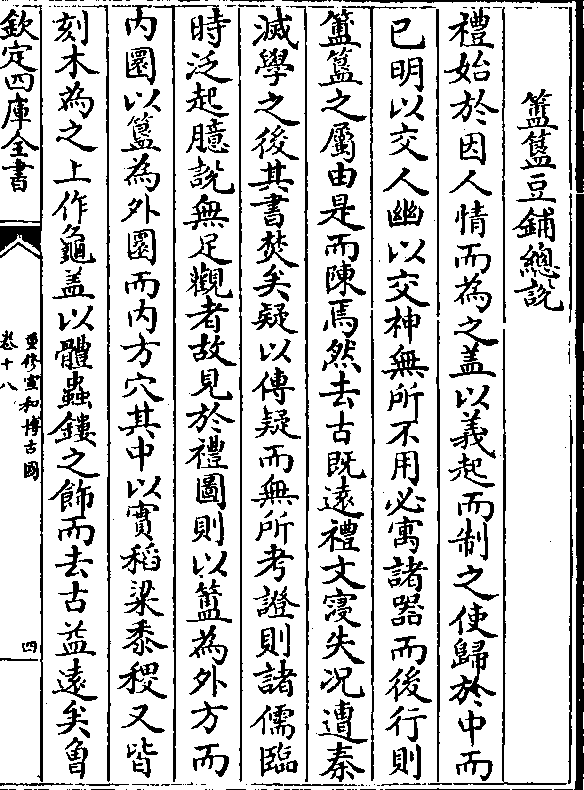 簠簋豆鋪總説
禮始於因人情而為之盖以義起而制之使歸於中而
已明以交人幽以交神無所不用必寓諸器而後行則
簠簋之屬由是而陳焉然去古既遠禮文寖失况遭秦
滅學之後其書焚矣疑以傳疑而無所考證則諸儒臨
時泛起臆說無足觀者故見於禮圖則以簠為外方而
内圜以簋為外圜而内方穴其中以實稻粱黍稷又皆
刻木為之上作龜盖以體蟲鏤之飾而去古益逺矣曾
欽定四庫全書
重修宣和博古圖
卷十八
四